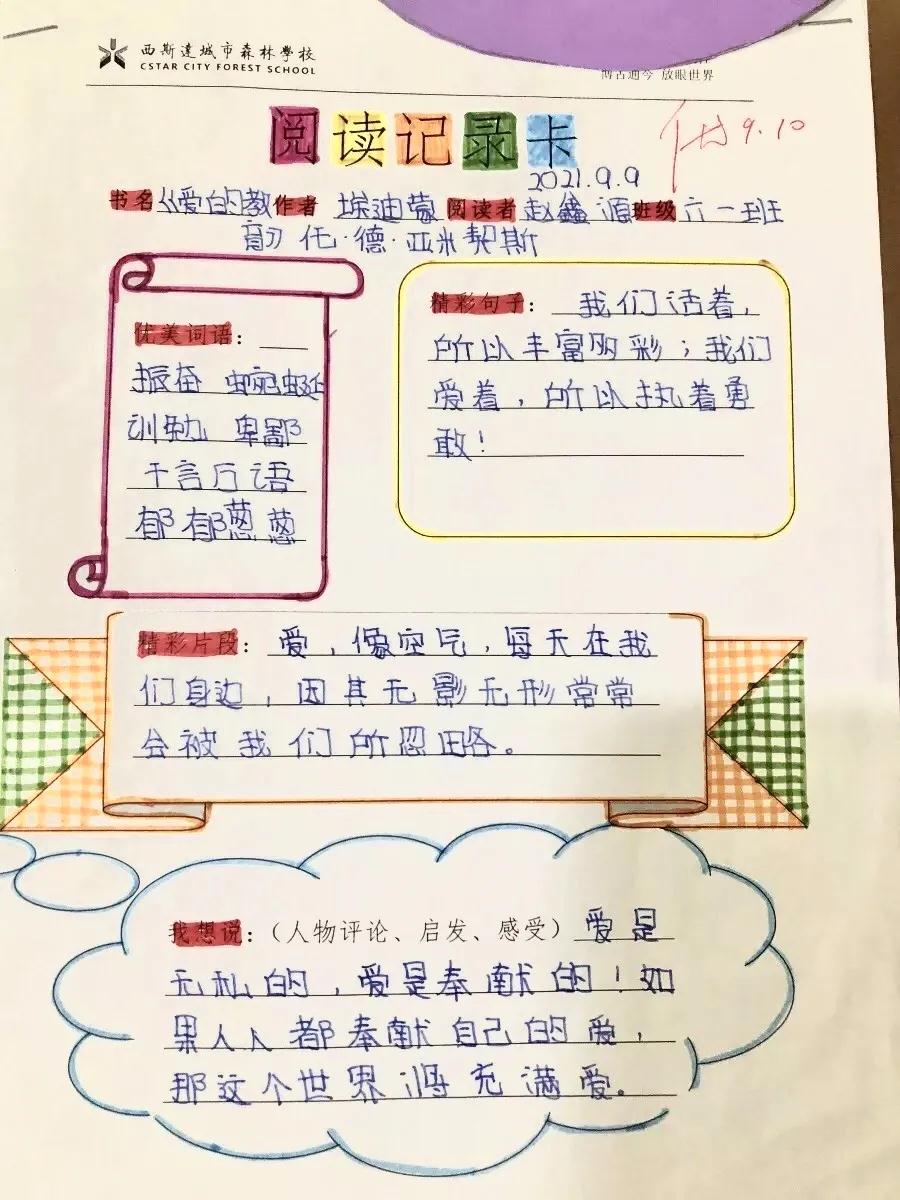 西斯達城市森林學校
CSTAR CITY FOREST SCHOOL
博古通今 放眼世界
阅读记录卡
9.10
2021.9.9
书名《爱的教 作者 埃迪蒙 阅读者 赵鑫源 班级 六一班
育》 托·德·亚米契斯
优美词语：
振奋 蜿蜒
训勉 卑鄙
千言万语
郁郁葱葱
精彩句子： 我们活着，
所以丰富多彩；我们
爱着，所以执着勇
敢！
精彩片段： 爱，像空气，每天在我
们身边，因其无影无形常常
会被我们所忽略。
我想说：（人物评论、启发、感受）爱是
无私的，爱是奉献的！如
果人人都奉献自己的爱，
那这个世界将充满爱。